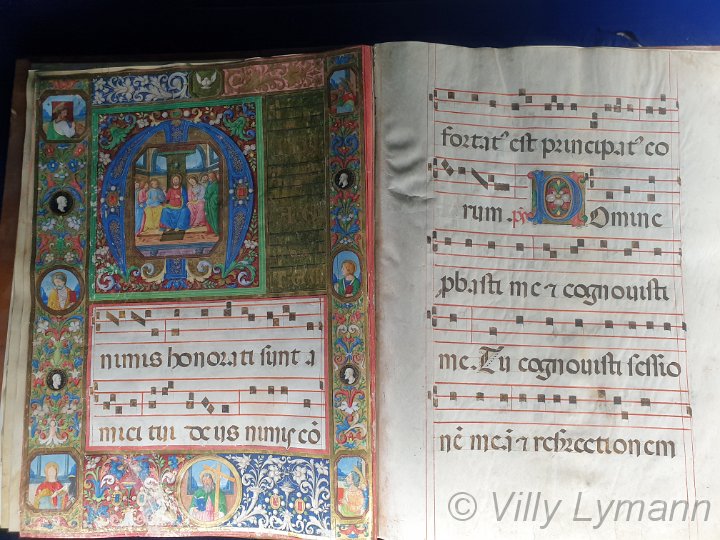 nimis honorati sunt a
mici tui deus nimis cō
fortatꝰ est principatꝰ eo
rum. ps Domine
ꝓbasti me ⁊ cognouisti
me. Tu cognouisti sessio
nē meā ⁊ resrectionem
© Villy Lymann